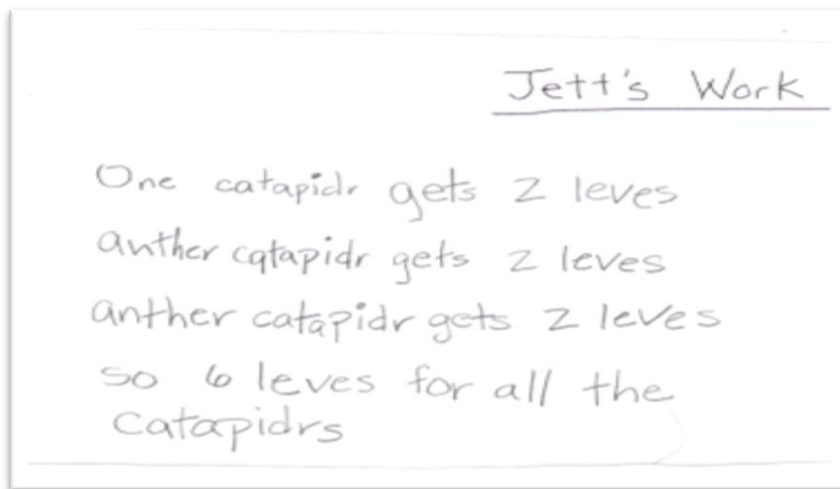 Jett's Work
One catapidr gets 2 leves
anther catapidr gets 2 leves
anther catapidr gets 2 leves
so 6 leves for all the
catapidrs